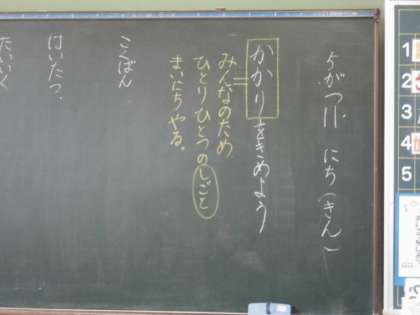 4がつ11にち(きん)
かかりをきめよう
みんなのため
ひとりひとつのしごと
まいにちやる。
こくばん
はいたつ、
たいいく
1
2
3
4
5